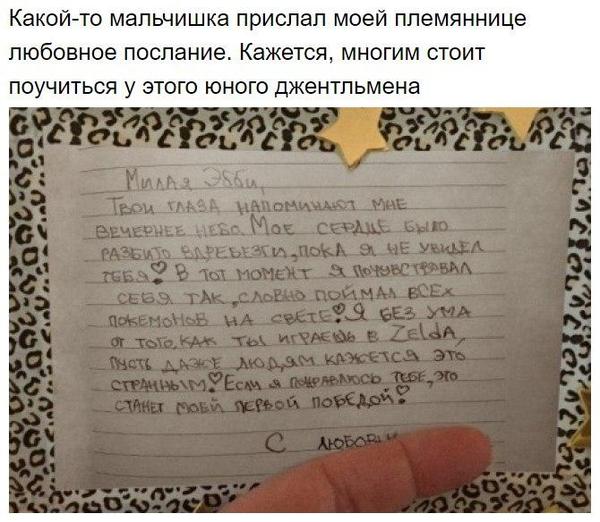 Какой-то мальчишка прислал моей племяннице
любовное послание. Кажется, многим стоит
поучиться у этого юного джентльмена
Милая Эбби,
Твои глаза напоминают мне
вечернее небо. Мое сердце было
разбито вдребезги, пока я не увидел
тебя! В тот момент я почувствовал
себя так, словно поймал всех
покемонов на свете! Я без ума
от того, как ты играешь в Zelda,
пусть даже людям кажется это
странным! Если я понравлюсь тебе, это
станет моей первой победой!
С любовью